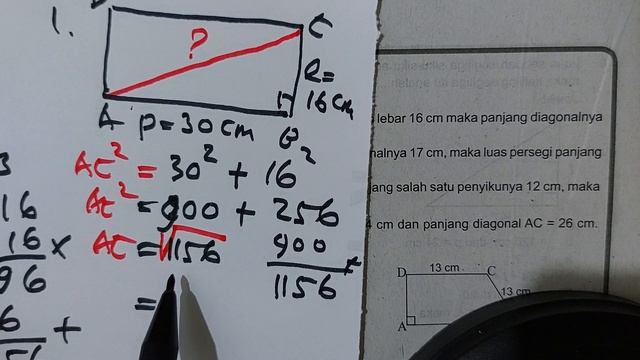 1.
?
C
l=
16 cm
A p=30 cm B
AC² = 30² + 16²
AC² = 900 + 256
AC = √1156
=
900
+
1156
16
16 x
96
+
lebar 16 cm maka panjang diagonalnya
nalnya 17 cm, maka luas persegi panjang
ang salah satu penyikunya 12 cm, maka
cm dan panjang diagonal AC = 26 cm.
D 13 cm C
13 cm
A